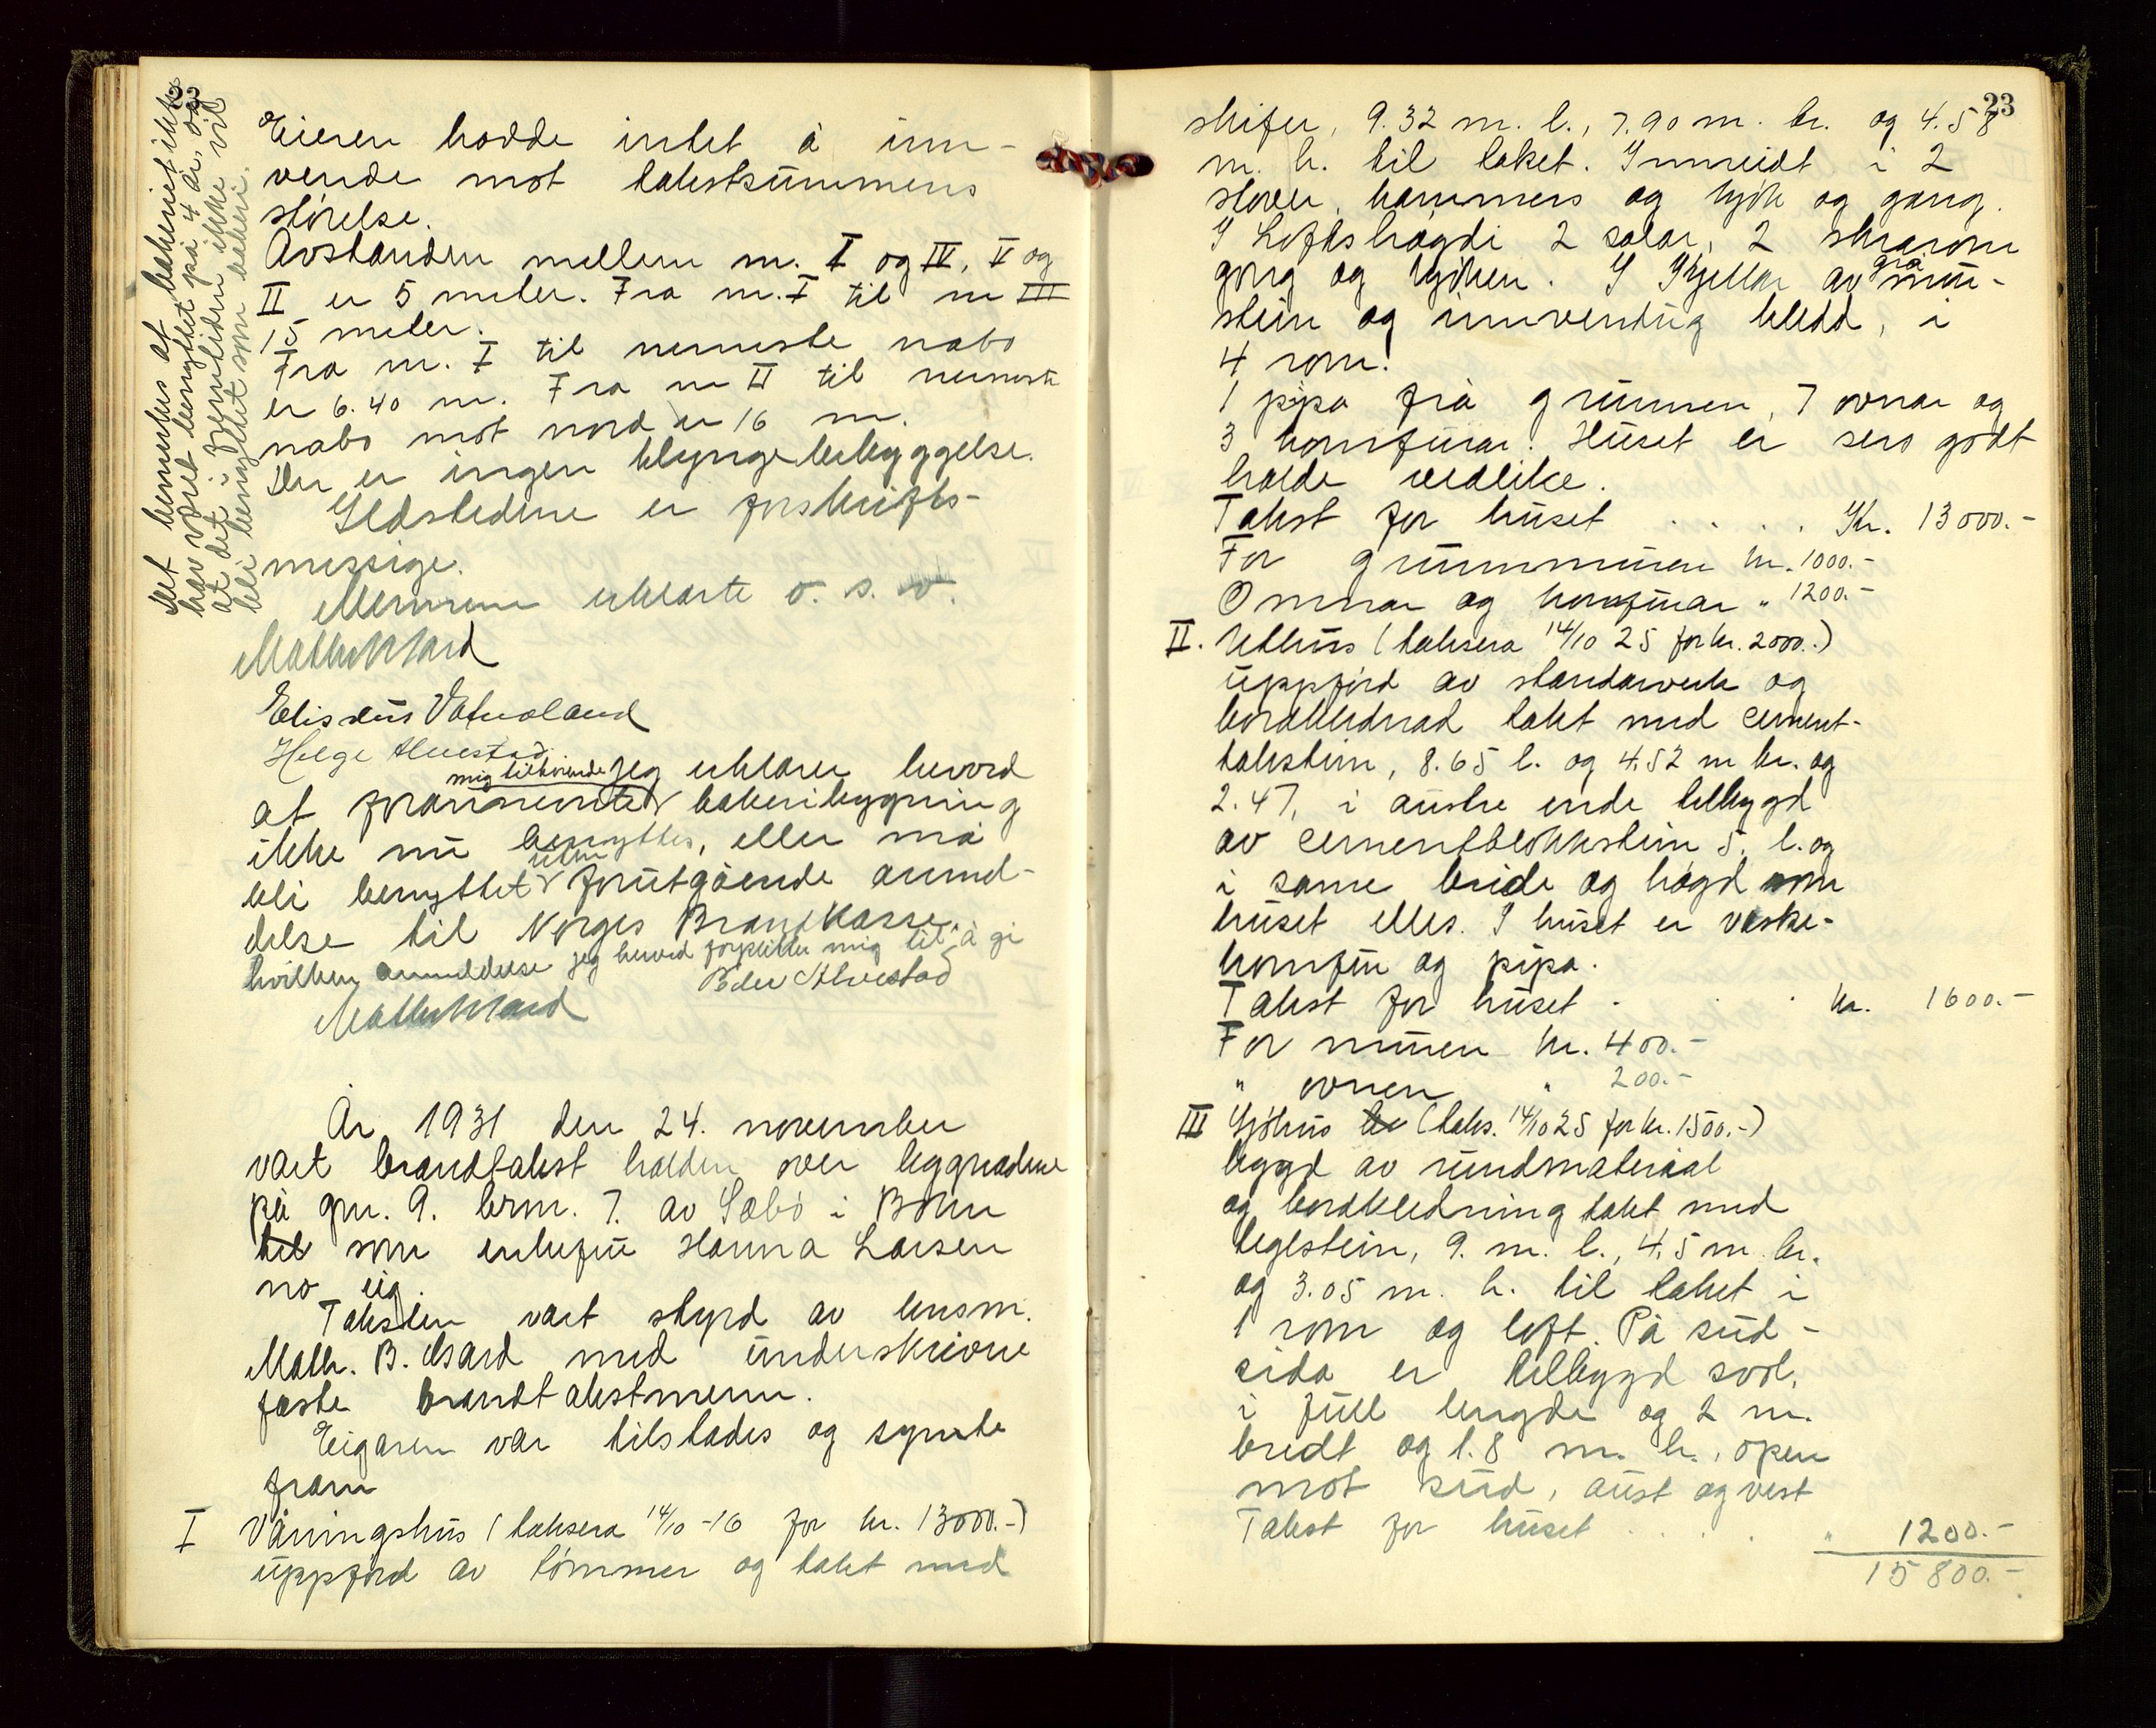 Det bemerkes at bakeriet ikke
har vøret benyttet på 4 år, og
at det i fremtiden ikke vil
bli benyttet som bakeri.
Eieren hadde intet å inn-
vende mot takstsummens
størelse.
Avstanden mellem nr. I og IV, V og
II er 5 meter. Fra nr. I til nr III
15 meter.
Fra nr. I til nermeste nabo
er 6.40 m. Fra nr II til nermeste
nabo mot nord er 16 m.
Der er ingen klyngebebyggelse.
Ildstedene er forskrifts-
messige.
Mennene erklærte o. s. v.
Math Vard
Eliseus Vatnaland
Helge Alvestad
mig tilhørende Jeg erklærer herved
at forannemte bakeribygning
ikke nu benyttes, eller må
uten
bli benyttet forutgående anmel-
delse til Norges Brandkasse,
hvilken anmeldelse jeg herved forplikter mig til å gi
Peder Alvestad
Math Vard
År 1931 den 24. november
vart brandtakst halden over byggnadene
på gnr. 9. brnr. 7. av Sæbø i Bømn
til som enkefru Hanna Larsen
no eig.
Taksten vart styrd av lensm.
Math. B. Vard med underskrivne
faste brandtakstmenn.
Eigaren var tilstades og synte
fram
I Våningshus (taksera 14/10-16 for kr. 13000.-)
uppførd av tømmer og takt med
23
skifer, 9.32 m. l., 7.90 m. br. og 4.58
m. h. til taket. Innreidt i 2
stover, kammers og kjøk og gang.
I Loftshøgdi 2 salar, 2 skrarom
gang og kjøken. I Kjellar av grå mur-
stein og innvendug kledd, i
4 rom.
1 pipa frå grunnen, 7 ovnar og
3 komfurar. Huset er sers godt
halde vedlike.
Takst for huset . . . . Kr. 13000.-
For grunnmuren kr. 1000.-
Omnar og komfurar " 1200.-
II. Uthus (taksera 14/10 25 for kr. 2000.-)
uppførd av standarverk og
bordklednad takt med cement-
takstein, 8.65 l. og 4.52 m br. og
2.47, i austre ende tilbygd
av cementblokkstein 5. l. og
i same breide og høgd som
huset elles. I huset er vaske-
komfur og pipa.
Takst for huset . . . kr. 1600.-
For muren kr. 400.-
" ovnen " 200.-
III Sjøhus (taks. 14/10 25 for kr. 1500.-)
bygd av rundmateriaal
og bordkledning takt med
teglstein, 9. m. l., 4.5 m br.
og 3.05 m. h. til taket i
1 rom og loft. På sud-
sida er tilbygd sval,
i full lengde og 2 m.
bredt og 1.8 m. h., open
mot sud, aust og vest
Takst for huset . . . " 1200.-
15800.-